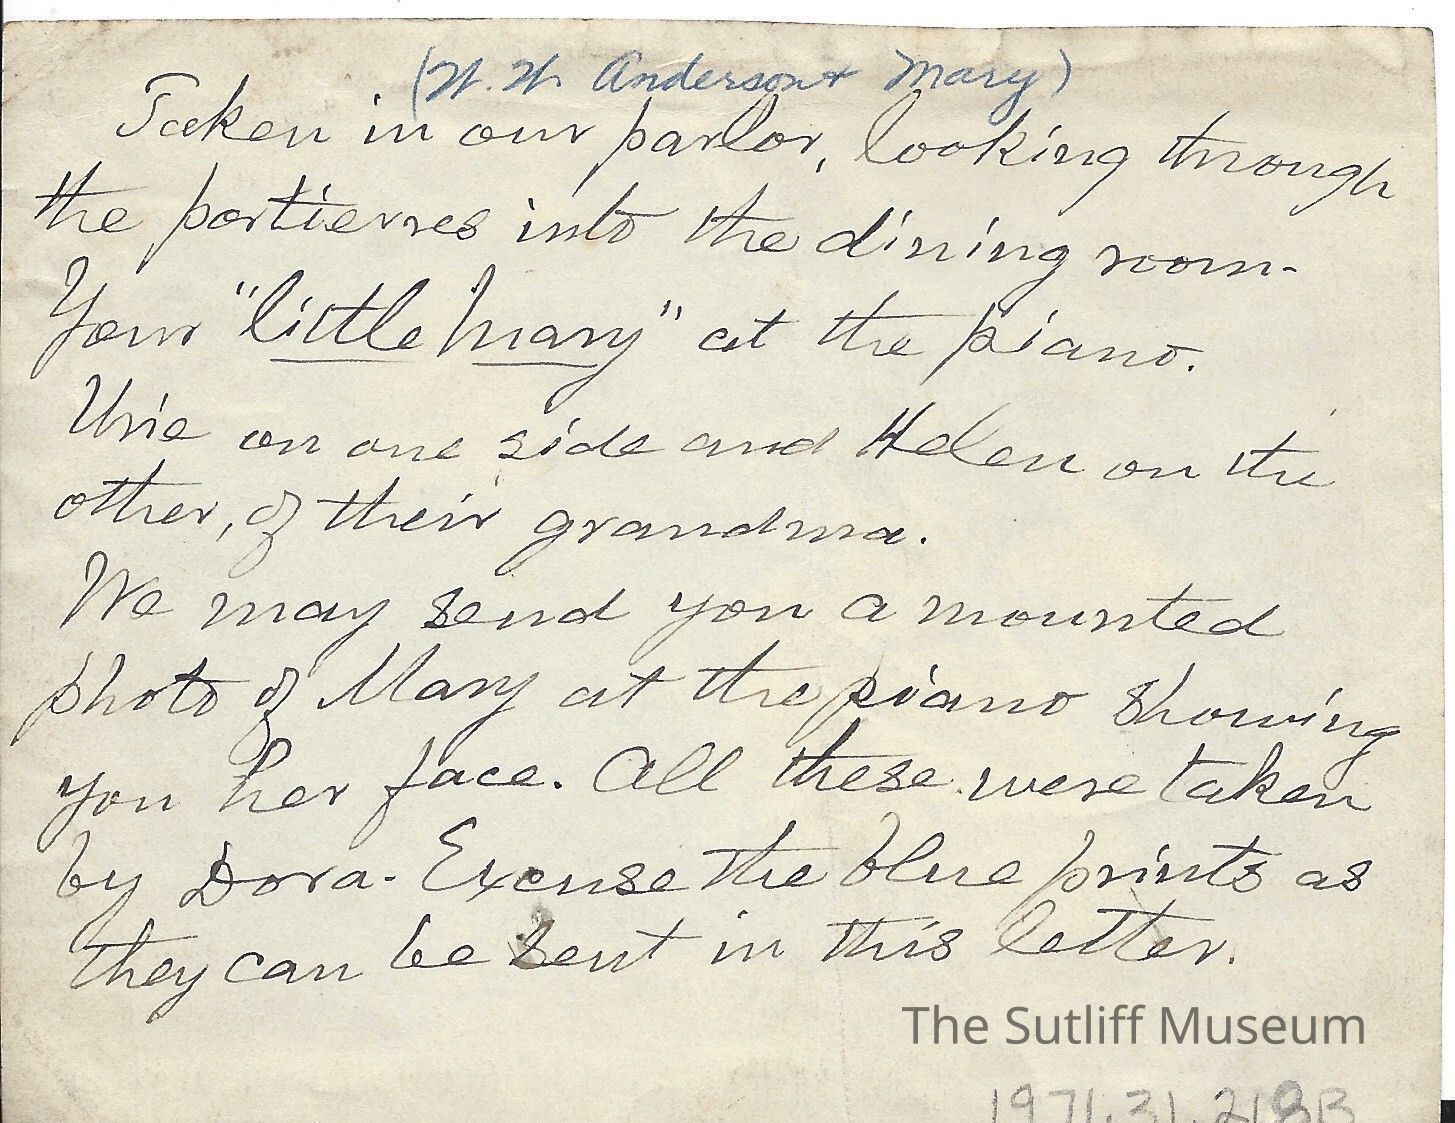 (W. W. Anderson + Mary)
Taken in our parlor, looking through
the portierres into the dining room-
Your "little Mary" at the piano.
Urie on one side and Helen on the
other, of their grandma.
We may send you a mounted
photo of Mary at the piano showing
you her face. All these were taken
by Dora- Excuse the blue prints as
they can be sent in this letter.
The Sutliff Museum
1971.31.218B